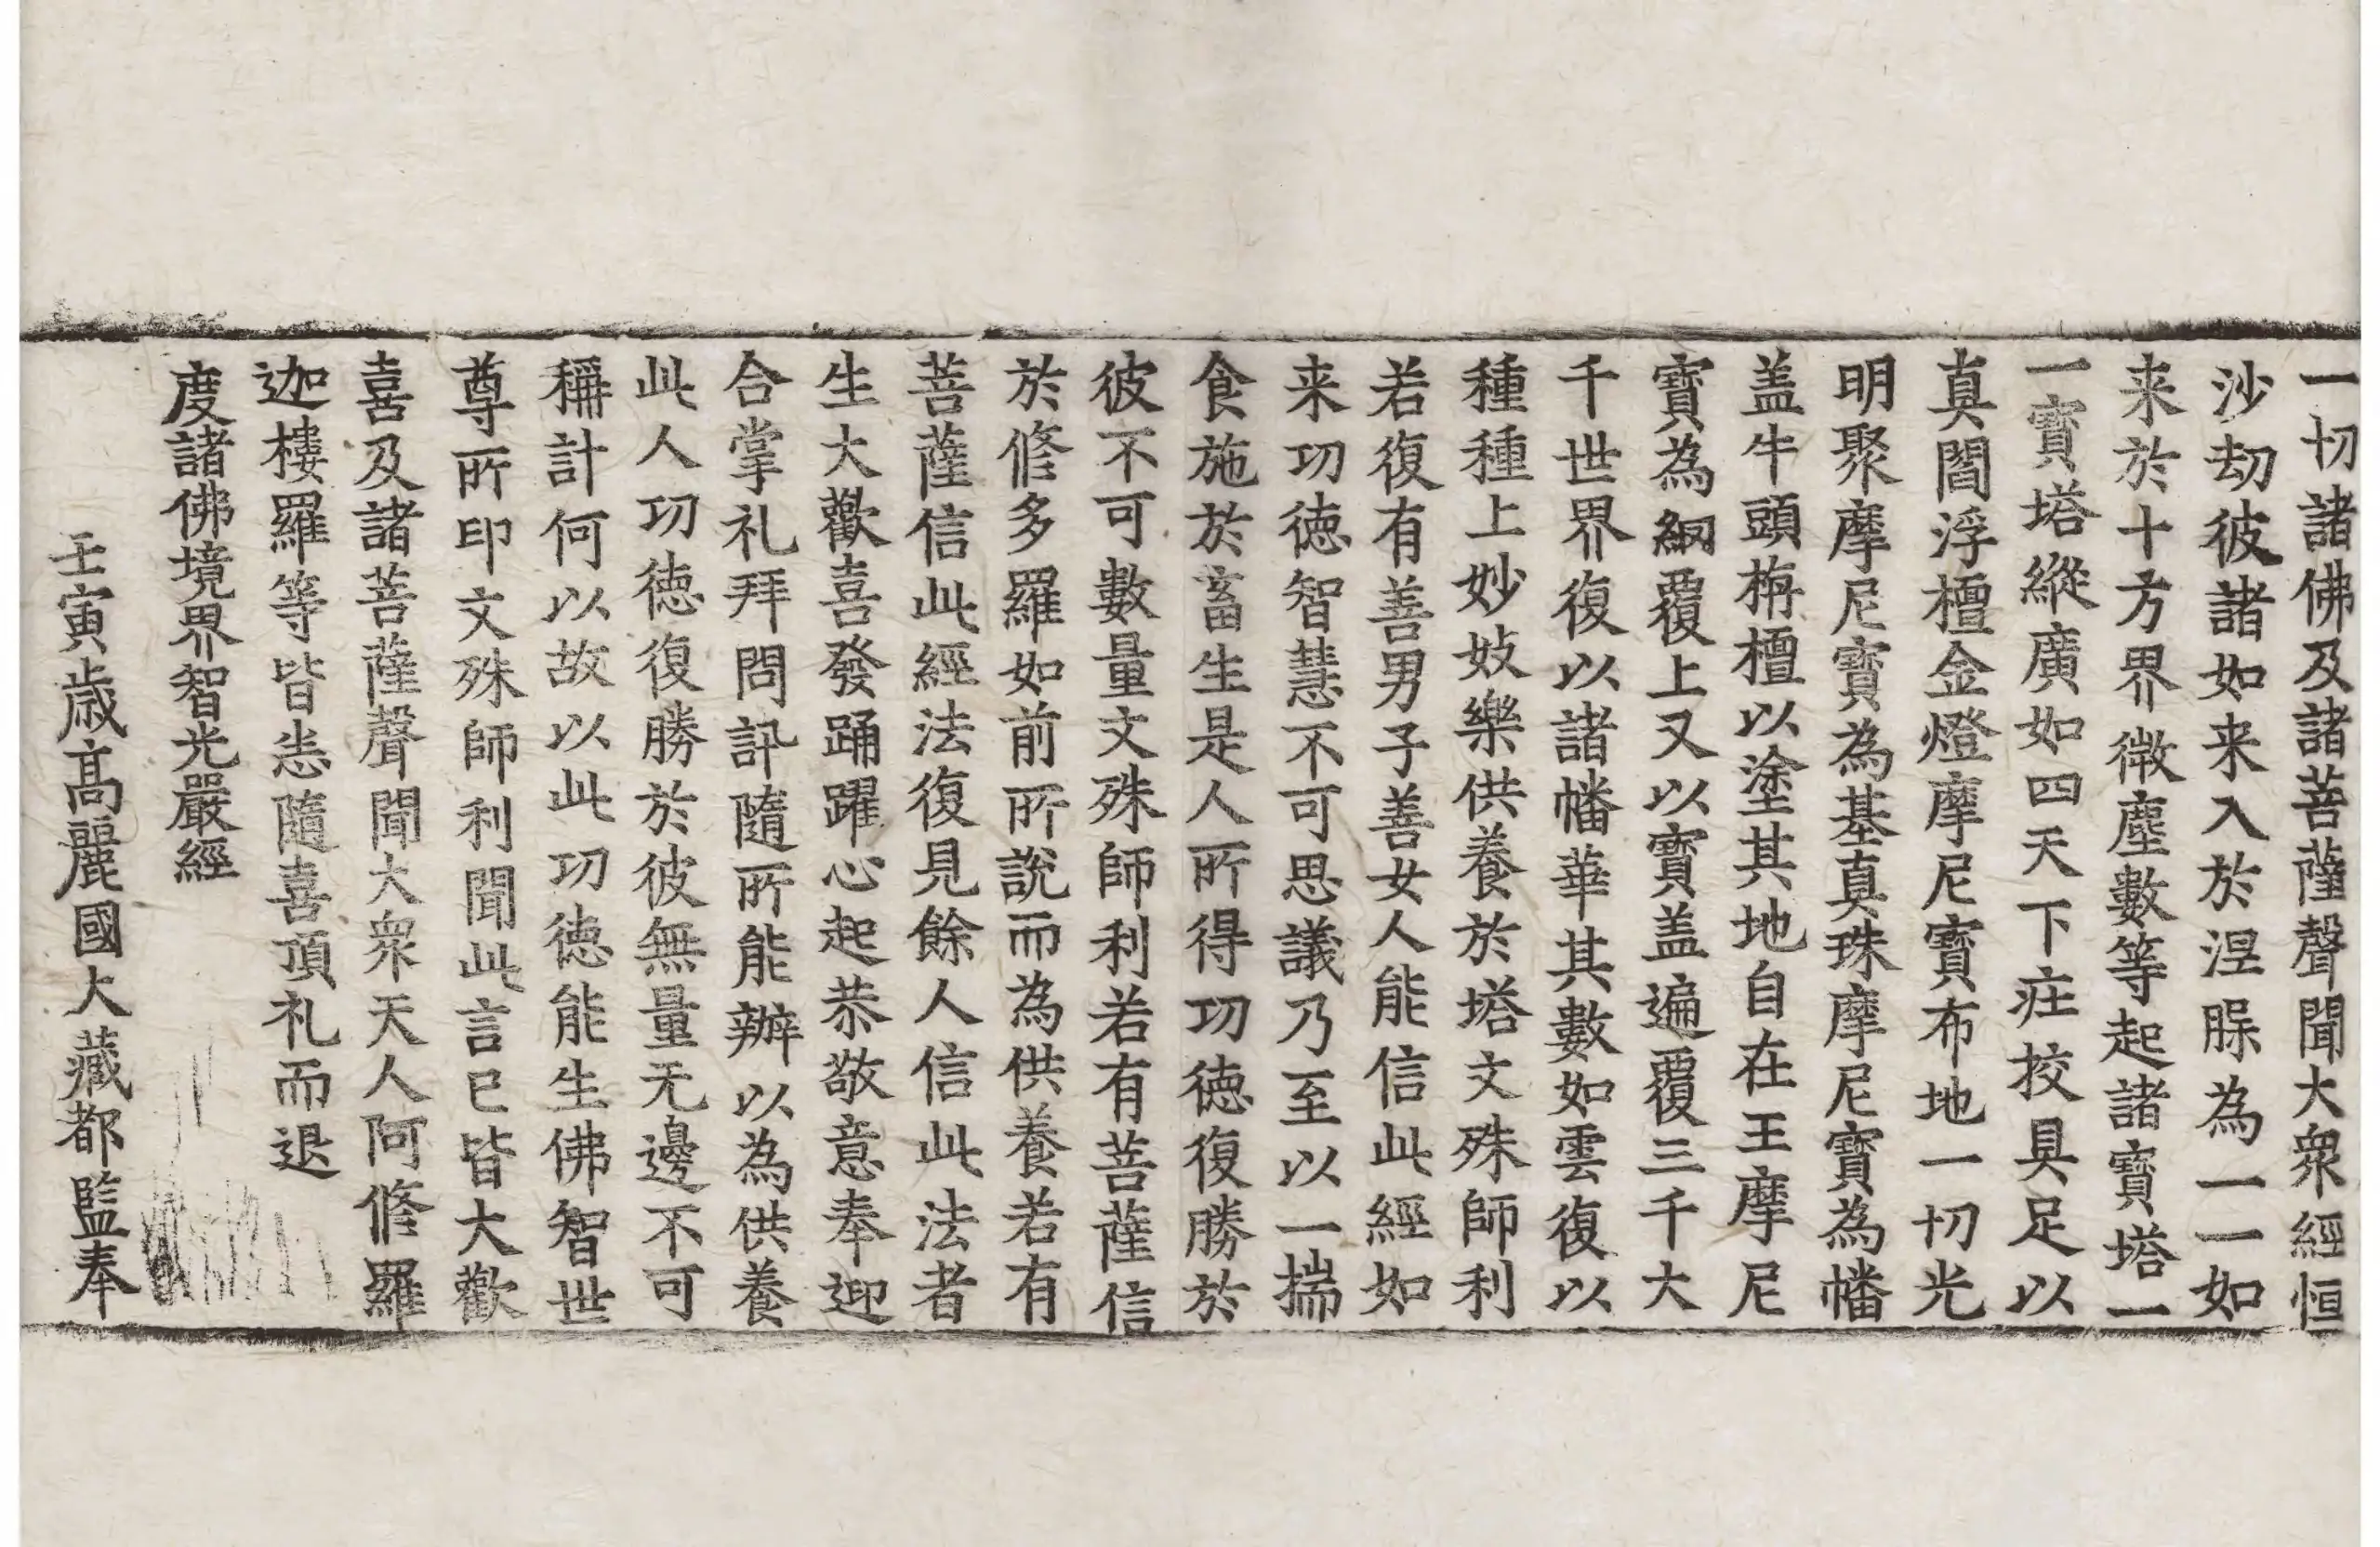 一切諸佛及諸菩薩聲聞大衆經恒
沙劫彼諸如来入於涅脲為一一如
来於十方界微塵數等起諸寶塔一
一寶塔縱廣如四天下疘挍具足以
真閻浮檀金燈摩尼寶布地一切光
明聚摩尼寶為基真珠摩尼寶為幡
盖牛頭栴檀以塗其地自在王摩尼
寶為網覆上又以寶盖遍覆三千大
千世界復以諸幡華其數如雲復以
種種上妙妓樂供養於塔文殊師利
若復有善男子善女人能信此經如
来功徳智慧不可思議乃至以一揣
食施於畜生是人所得功徳復勝於
彼不可數量文殊師利若有菩薩信
於修多羅如前所說而為供養若有
菩薩信此經法復見餘人信此法者
生大歡喜發踊躍心起恭敬意奉迎
合掌礼拜問訊隨所能辦以為供養
此人功徳復勝於彼無量无邊不可
稱計何以故以此功徳能生佛智世
尊所印文殊師利聞此言已皆大歡
喜及諸菩薩聲聞大衆天人阿修羅
迦樓羅等皆悉隨喜頂礼而退
度諸佛境界智光嚴經
壬寅歲髙麗國大藏都監奉